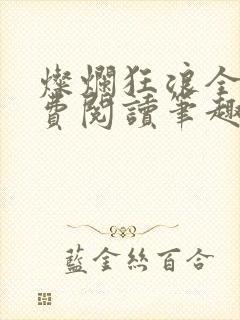 燦爛狂浪全
費閱讀筆趣
藍金絲百合